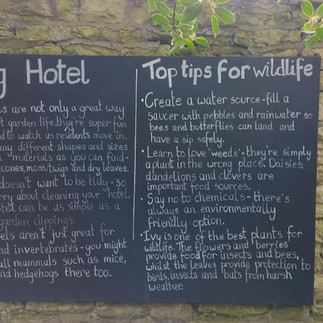 g Hotel
ls are not only a great way
t garden life, they're super fun
d to watch as residents move in.
any different shapes and sizes
materials as you can find-
cones, moss, twigs and dry leaves.
doesn't want to be tidy - so
rry about cleaning your hotel.
can be as simple as a
garden clippings.
els aren't just great for
nd invertebrates - you might
all mammals such as mice,
nd hedgehogs there too.
Top tips for wildlife
• Create a water source - fill a
saucer with pebbles and rainwater so
bees and butterflies can land and
have a sip safely.
• Learn to love 'weeds' - they're simply
a plant in the wrong place. Daisies,
dandelions and clovers are
important food sources.
• Say no to chemicals - there's
always an environmentally
friendly option.
• Ivy is one of the best plants for
wildlife. The flowers and berries
provide food for insects and bees,
whilst the leaves provide protection to
birds, insects and bats from harsh
weather.